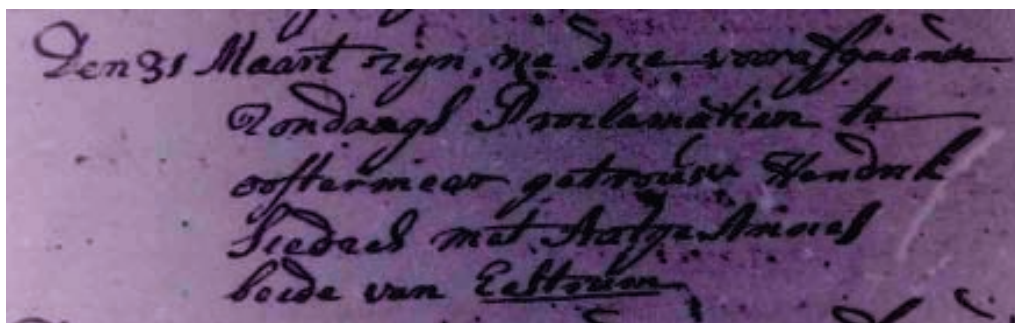 Den 31 Maart zijn, na drie voorafgaande
Zondaags Proclamatien te
oostermeer getrouwt Hendrik
Siedses met Aaltje Annes
beide van Eestrum